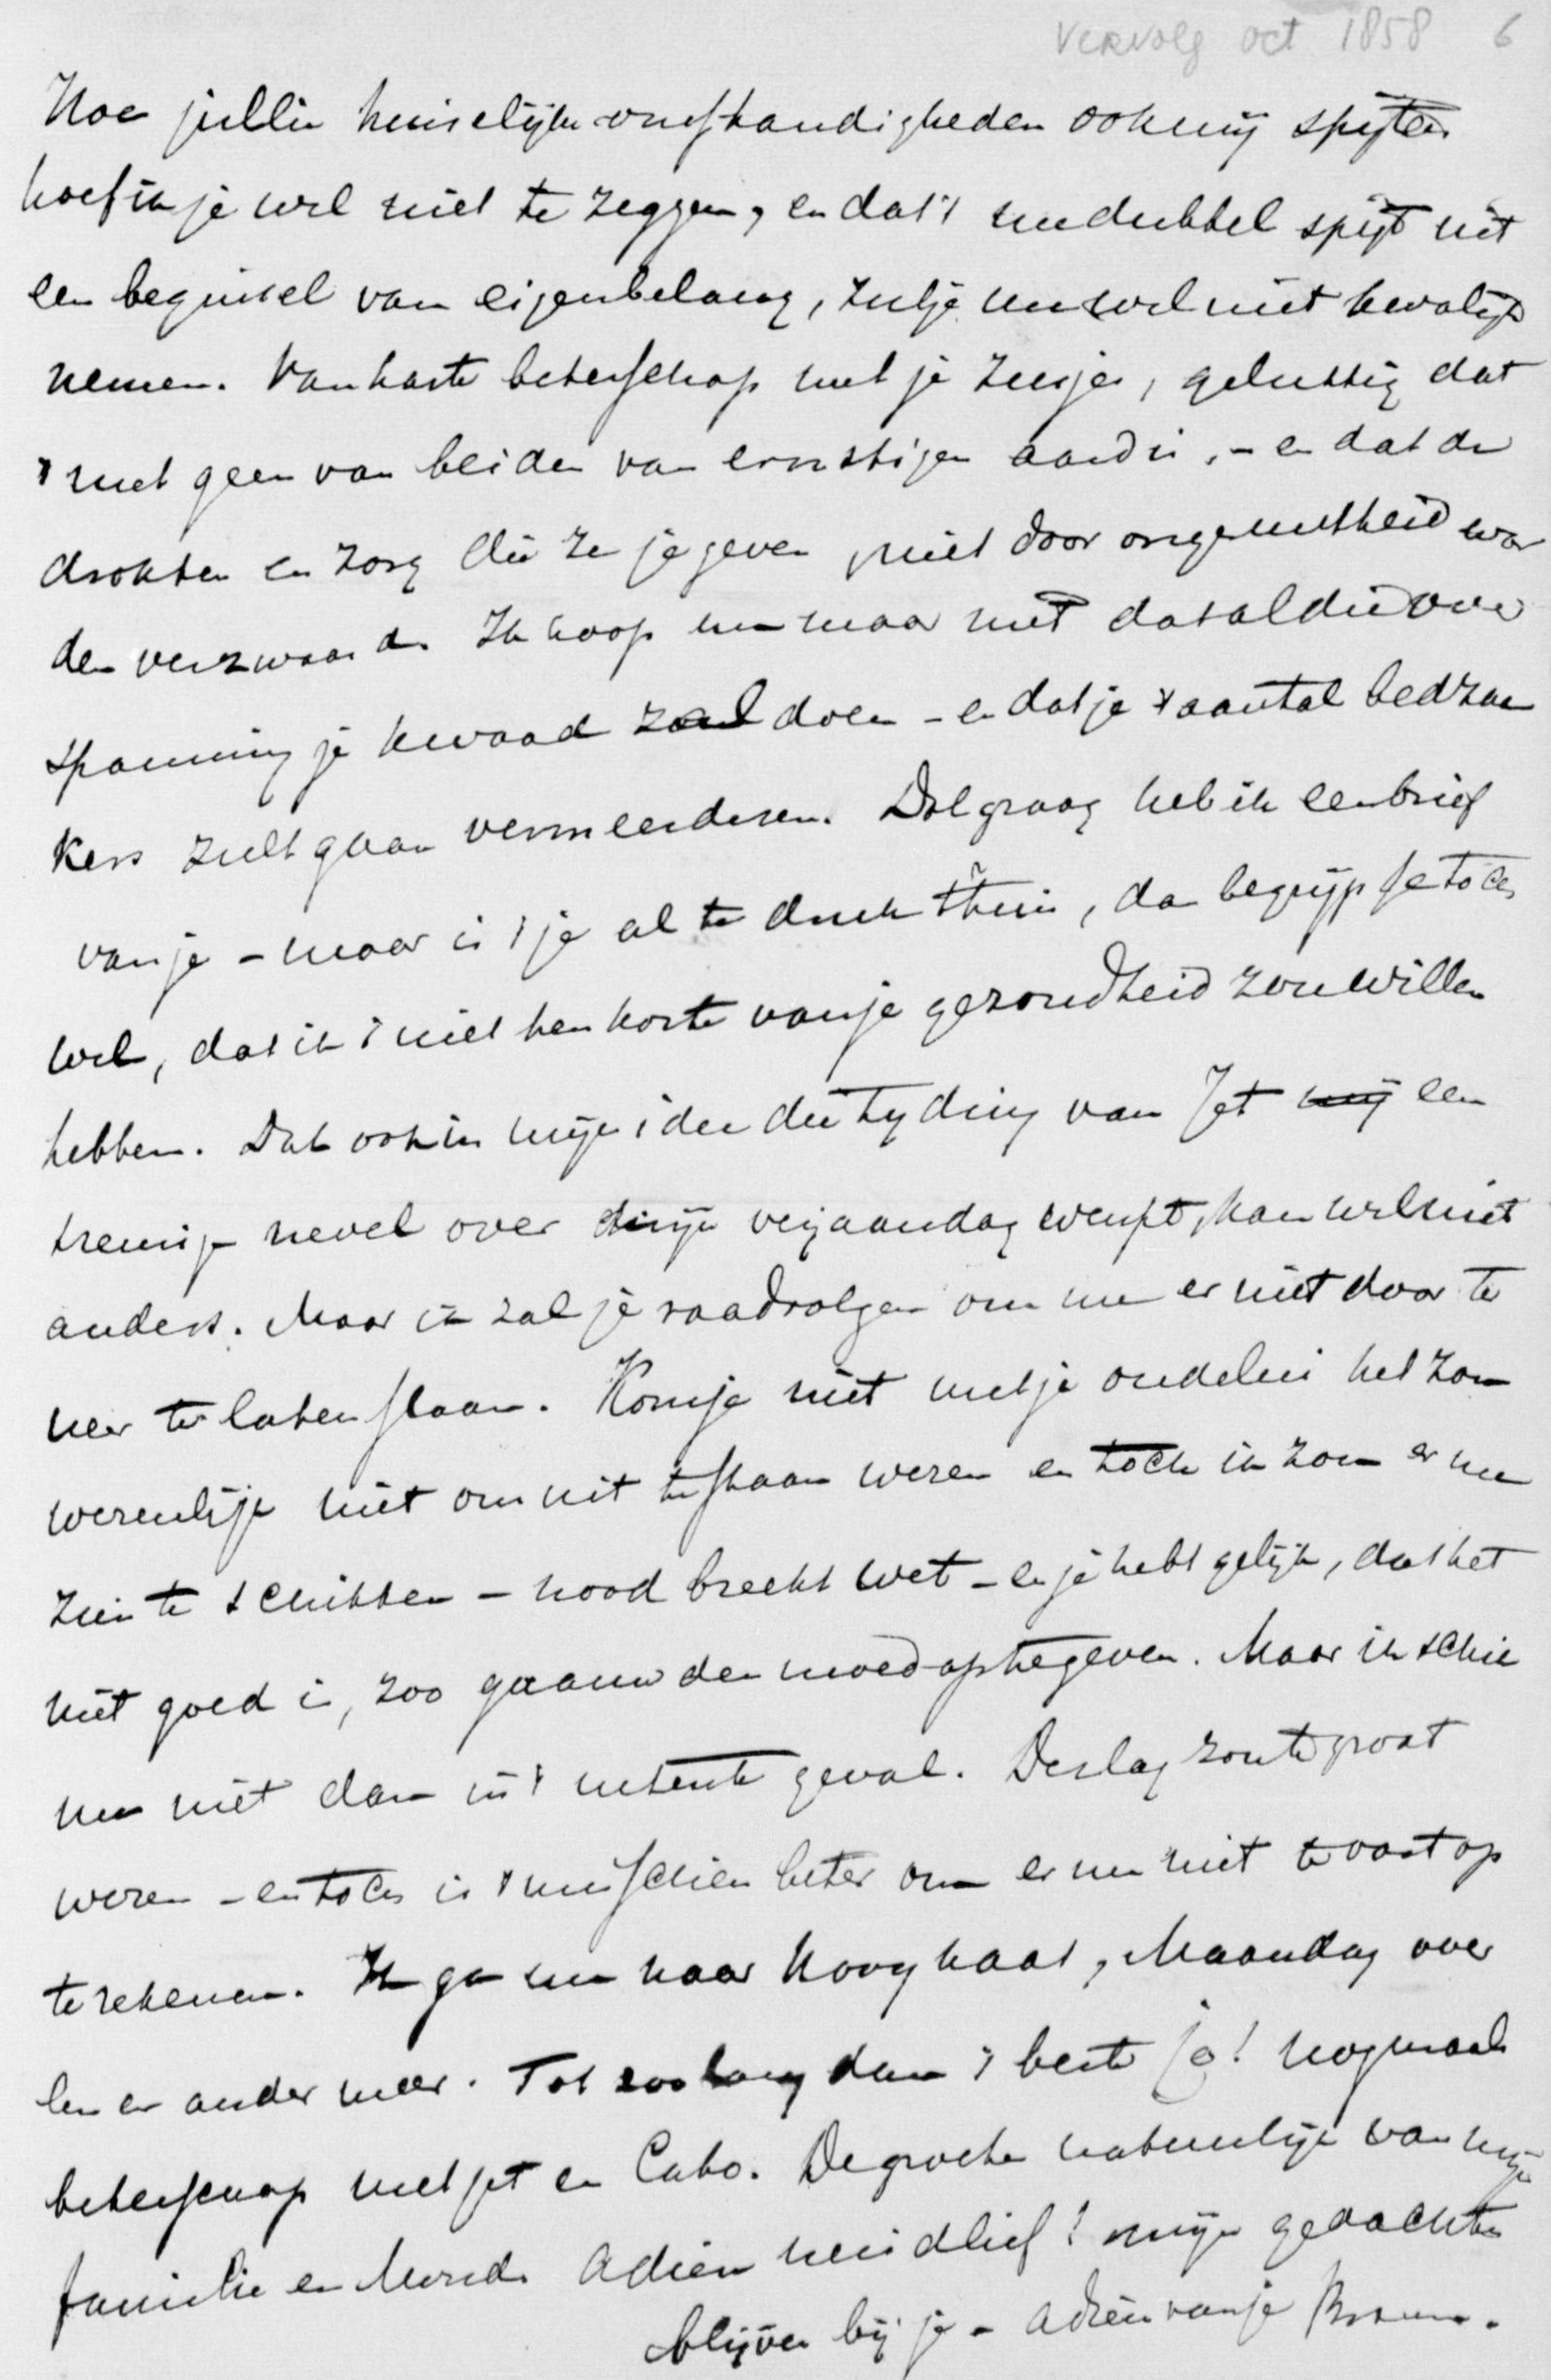 Vervolg oct 1858 6
Hoe jullie huiselijke omstandigheden ook mij spijten
hoef ik je wel niet te zeggen, en dat 't me dubbel spijt uit
een beginsel van eigenbelang, zul je me wel niet kwalijk
nemen. Van harte beterschap met je zusjes, gelukkig dat
't met geen van beiden van ernstigen aard is, - en dat de
drokten en zorg die ze je geven, niet door ongerustheid wor
den verzwaard. Ik hoop nu maar niet dat al die over
spanning je kwaad zal doen - en dat je 't aantal bedzae
kers zult gaan vermeerderen. Dolgraag heb ik een brief
van je - maar is 't je al te druk thuis, dan begrijp je toch
wel, dat ik 't niet ten koste van je gezondheid zou willen
hebben. Dat ook in mijn idee die tyding van Jet mij een
treurige nevel over mijn verjaardag werpt, kan wel niet
anders. Maar ik zal je raad volgen om me er niet door te
neer te laten slaan. Kom je niet met je oudelui het zou
wezenlijk niet om uit te staan wezen en toch ik zou er me
zien te schikken - nood breekt wet - en je hebt gelijk, dat het
niet goed is, zoo gaauw den moed op te geven. Maar ik schik
me niet dan in 't uiterste geval. De slag zou te groot
wezen - en toch is 't misschien beter om er me niet te vast op
te rekenen. Ik ga nu naar Hooghaal, Maandag over
een en ander meer. Tot zoo lang dan 's beste Jo! nogmaals
beterschap met Jet en Cato. De groeten natuurlijk van mijn
familie en Adieu hartlief! mijn gedachten
blijven bij je - adieu van je